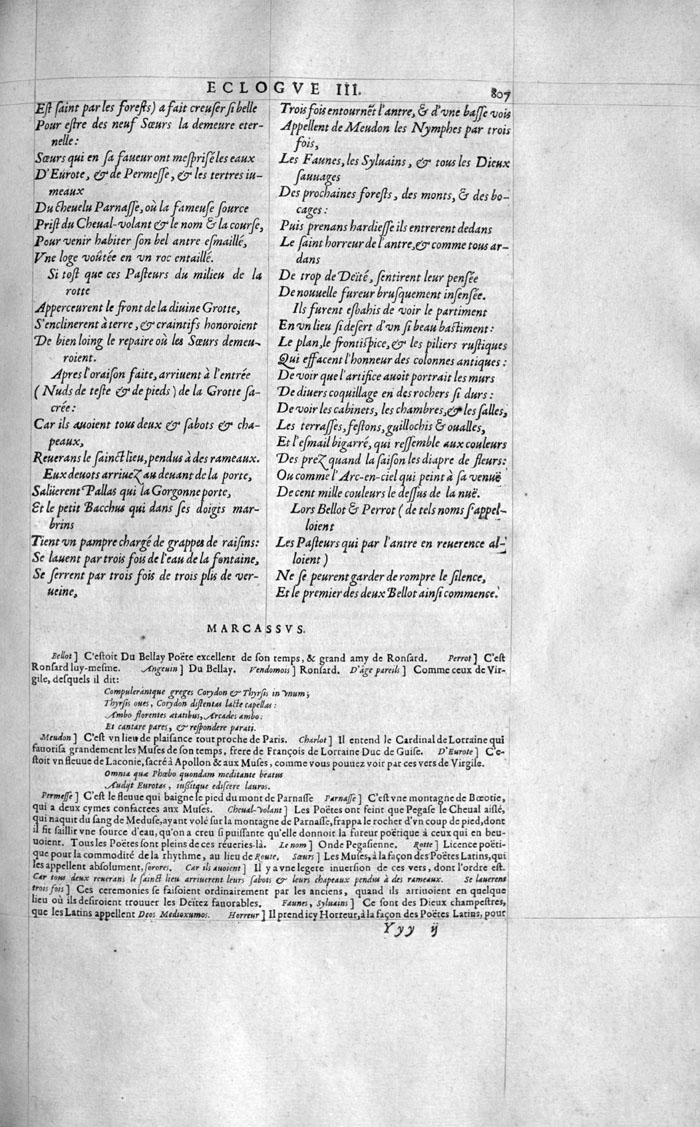 ECLOGVE III.
807
Est saint par les forests) a fait creuser si belle
Pour estre des neuf Sœurs la demeure eter-
nelle:
Sœurs qui en sa faueur ont mesprisé les eaux
D'Eurote, & de Permesse, & les tertres iu-
meaux
Du cheuelu Parnasse, où la fameuse source
Prist du Cheual-volant & le nom & la course,
Pour venir habiter son bel antre esmaillé,
Vne loge voûtée en vn roc entaillé.
Si tost que ces Pasteurs du milieu de la
rotte
Apperceurent le front de la diuine Grotte,
S'enclinerent à terre, & craintifs honoroient
De bien loing le repaire où les Sœurs demeu-
roient.
Apres l'oraison faite, arriuent à l'entrée
(Nuds de teste & de pieds) de la Grotte sa-
crée:
Car ils auoient tous deux & sabots & cha-
peaux,
Reuerans le sainct lieu, pendus à des rameaux.
Eux deuots arriuez au deuant de la porte,
Salüerent Pallas qui la Gorgonne porte,
Et le petit Bacchus qui dans ses doigts mar-
brins
Tient vn pampre chargé de grappes de raisins:
Se lauent par trois fois de l'eau de la fontaine,
Se serrent par trois fois de trois plis de ver-
ueine,
Trois fois entournẽt l'antre, & d'vne basse vois
Appellent de Meudon les Nymphes par trois
fois,
Les Faunes, les Syluains, & tous les Dieux
sauuages
Des prochaines forests, des monts, & des bo-
cages:
Puis prenans hardiesse ils entrerent dedans
Le saint horreur de l'antre, & comme tous ar-
dans
De trop de Deïté, sentirent leur pensée
De nouuelle fureur brusquement insensée.
Ils furent esbahis de voir le partiment
En vn lieu si desert d'vn si beau bastiment:
Le plan, le frontispice, & les piliers rustiques
Qui effacent l'honneur des colonnes antiques:
De voir que l'artifice auoit portrait les murs
De diuers coquillage en des rochers si durs:
De voir les cabinets, les chambres, & les salles,
Les terrasses, festons, guillochis & oualles,
Et l'esmail bigarré, qui ressemble aux couleurs
Des prez quand la saison les diapre de fleurs:
Ou comme l'Arc-en-ciel qui peint à sa venuë
De cent mille couleurs le dessus de la nuë.
Lors Bellot & Perrot (de tels noms s'appel-
loient
Les Pasteurs qui par l'antre en reuerence al-
loient)
Ne se peurent garder de rompre le silence,
Et le premier des deux Bellot ainsi commence.
MARCASSVS.
Bellot] C'estoit Du Bellay Poëte excellent de son temps, & grand amy de Ronsard. Perrot] C'est
Ronsard luy-mesme. Angeuin] Du Bellay. Vendomois] Ronsard. D'âge pareils] Comme ceux de Vir-
gile, desquels il dit:
Compulerántque greges Corydon & Thyrsis in vnum;
Thyrsis oues, Corydon distentas lacte capellas:
Ambo florentes ætatibus, Arcades ambo:
Et cantare pares, & respondere parati.
Meudon] C'est vn lieu de plaisance tout proche de Paris. Charlot] Il entend le Cardinal de Lorraine qui
fauorisa grandement les Muses de son temps, frere de François de Lorraine Duc de Guise. D'Eurote] C'e-
stoit vn fleuue de Laconie, sacré à Apollon & aux Muses, comme vous pouuez voir par ces vers de Virgile.
Omnia quæ Phœbo quondam meditante beatus
Audijt Eurotas, iussitque ediscere lauros.
Permesse] C'est le fleuue qui baigne le pied du mont de Parnasse Parnasse] C'est vne montagne de Bœotie,
qui a deux cymes consacrees aux Muses. Cheual-volant] Les Poëtes ont feint que Pegase le Cheual aislé,
qui naquit du sang de Meduse, ayant volé sur la montagne de Parnasse, frappa le rocher d'vn coup de pied, dont
il fit saillir vne source d'eau, qu'on a creu si puissante qu'elle donnoit la fureur poëtique à ceux qui en beu-
uoient. Tous les Poëtes sont pleins de ces réueries-là. Le nom] Onde Pegasienne. Rotte] Licence poëti-
que pour la commodité de la rhythme, au lieu de Route. Sœurs] Les Muses, à la façon des Poëtes Latins, qui
les appellent absolument, sorores. Car ils auoient] Il y a vne legere inuersion de ces vers, dont l'ordre est.
Car tous deux reuerans le sainct lieu arriuerent leurs sabots & leurs chapeaux pendus à des rameaux. Se lauerent
trois fois] Ces ceremonies se faisoient ordinairement par les anciens, quand ils arriuoient en quelque
lieu où ils desiroient trouuer les Deïtez fauorables. Faunes, Syluains] Ce sont des Dieux champestres,
que les Latins appellent Deos Medioxumos. Horreur] Il prend icy Horreur, à la façon des Poëtes Latins, pour
Yyy ij